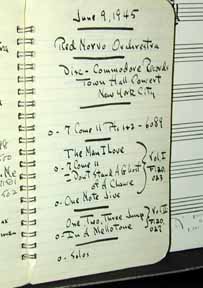 June 9, 1945
Red Norvo Orchestra
Disc - Commodore Records
Town Hall Concert
New York City
o - 7 Come 11 Pts. 1+2 - 6089
The Man I Love
o - 7 Come 11
- Don't Stand A Ghost
of A Chance
Vol. I
o - One Note Jive
One, Two, Three Jump
o - In A Mellotone
Vol. II
o - Solos